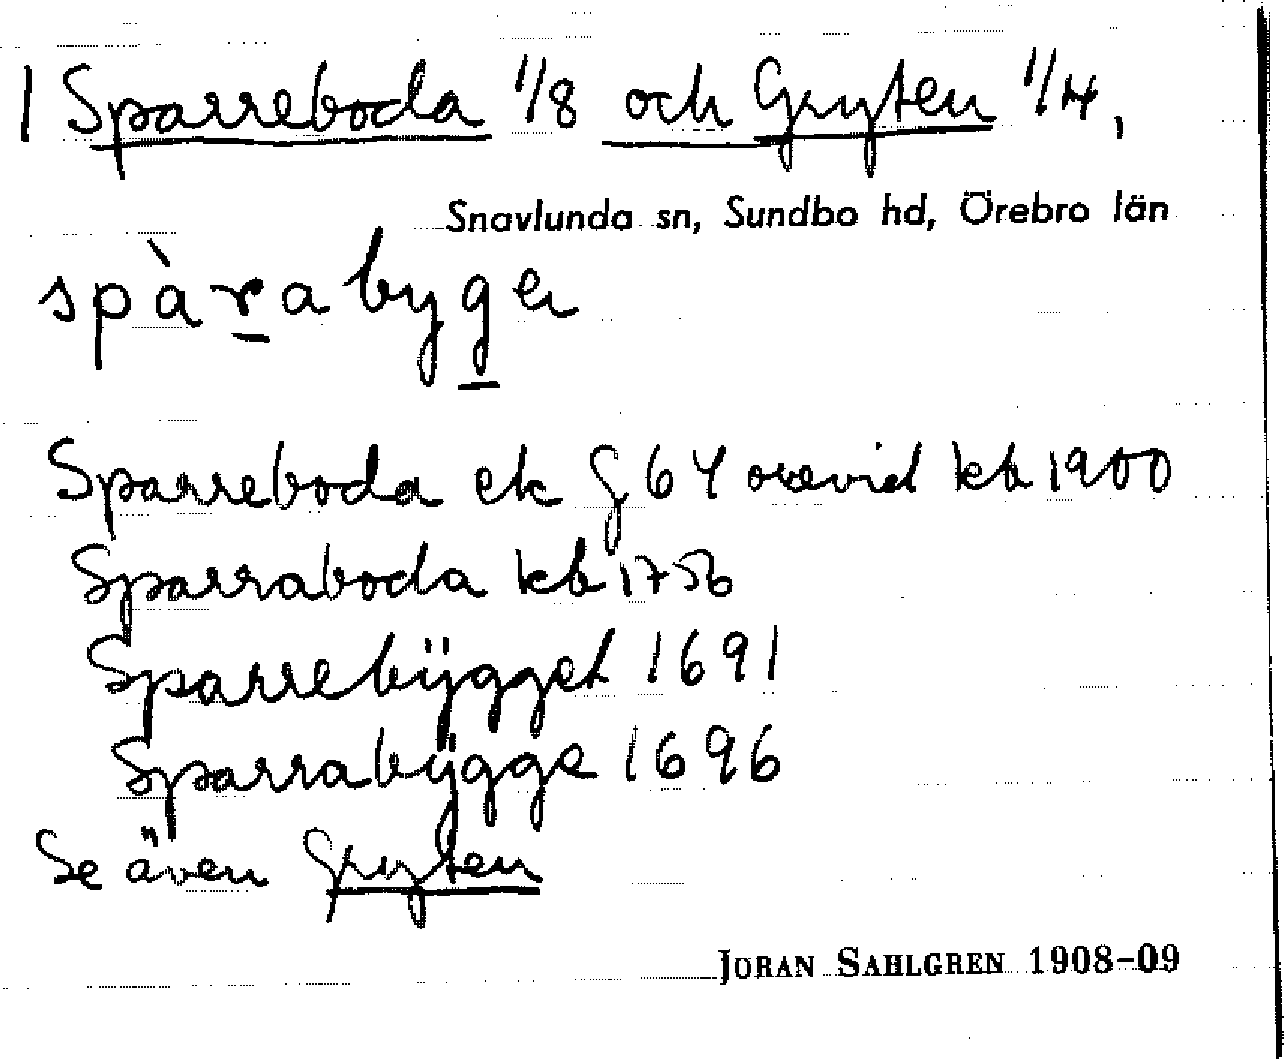 1 Sparreboda 1/8 och Gryten 1/4,
Snavlunda sn, Sundbo hd, Örebro län
spàrabygen
Sparreboda ek 64 kb 1900
Sparraboda kb 1756
Sparrebÿgget 1691
Sparrabÿgge 1696
Se även Gryten
JÖRAN SAHLGREN 1908–09